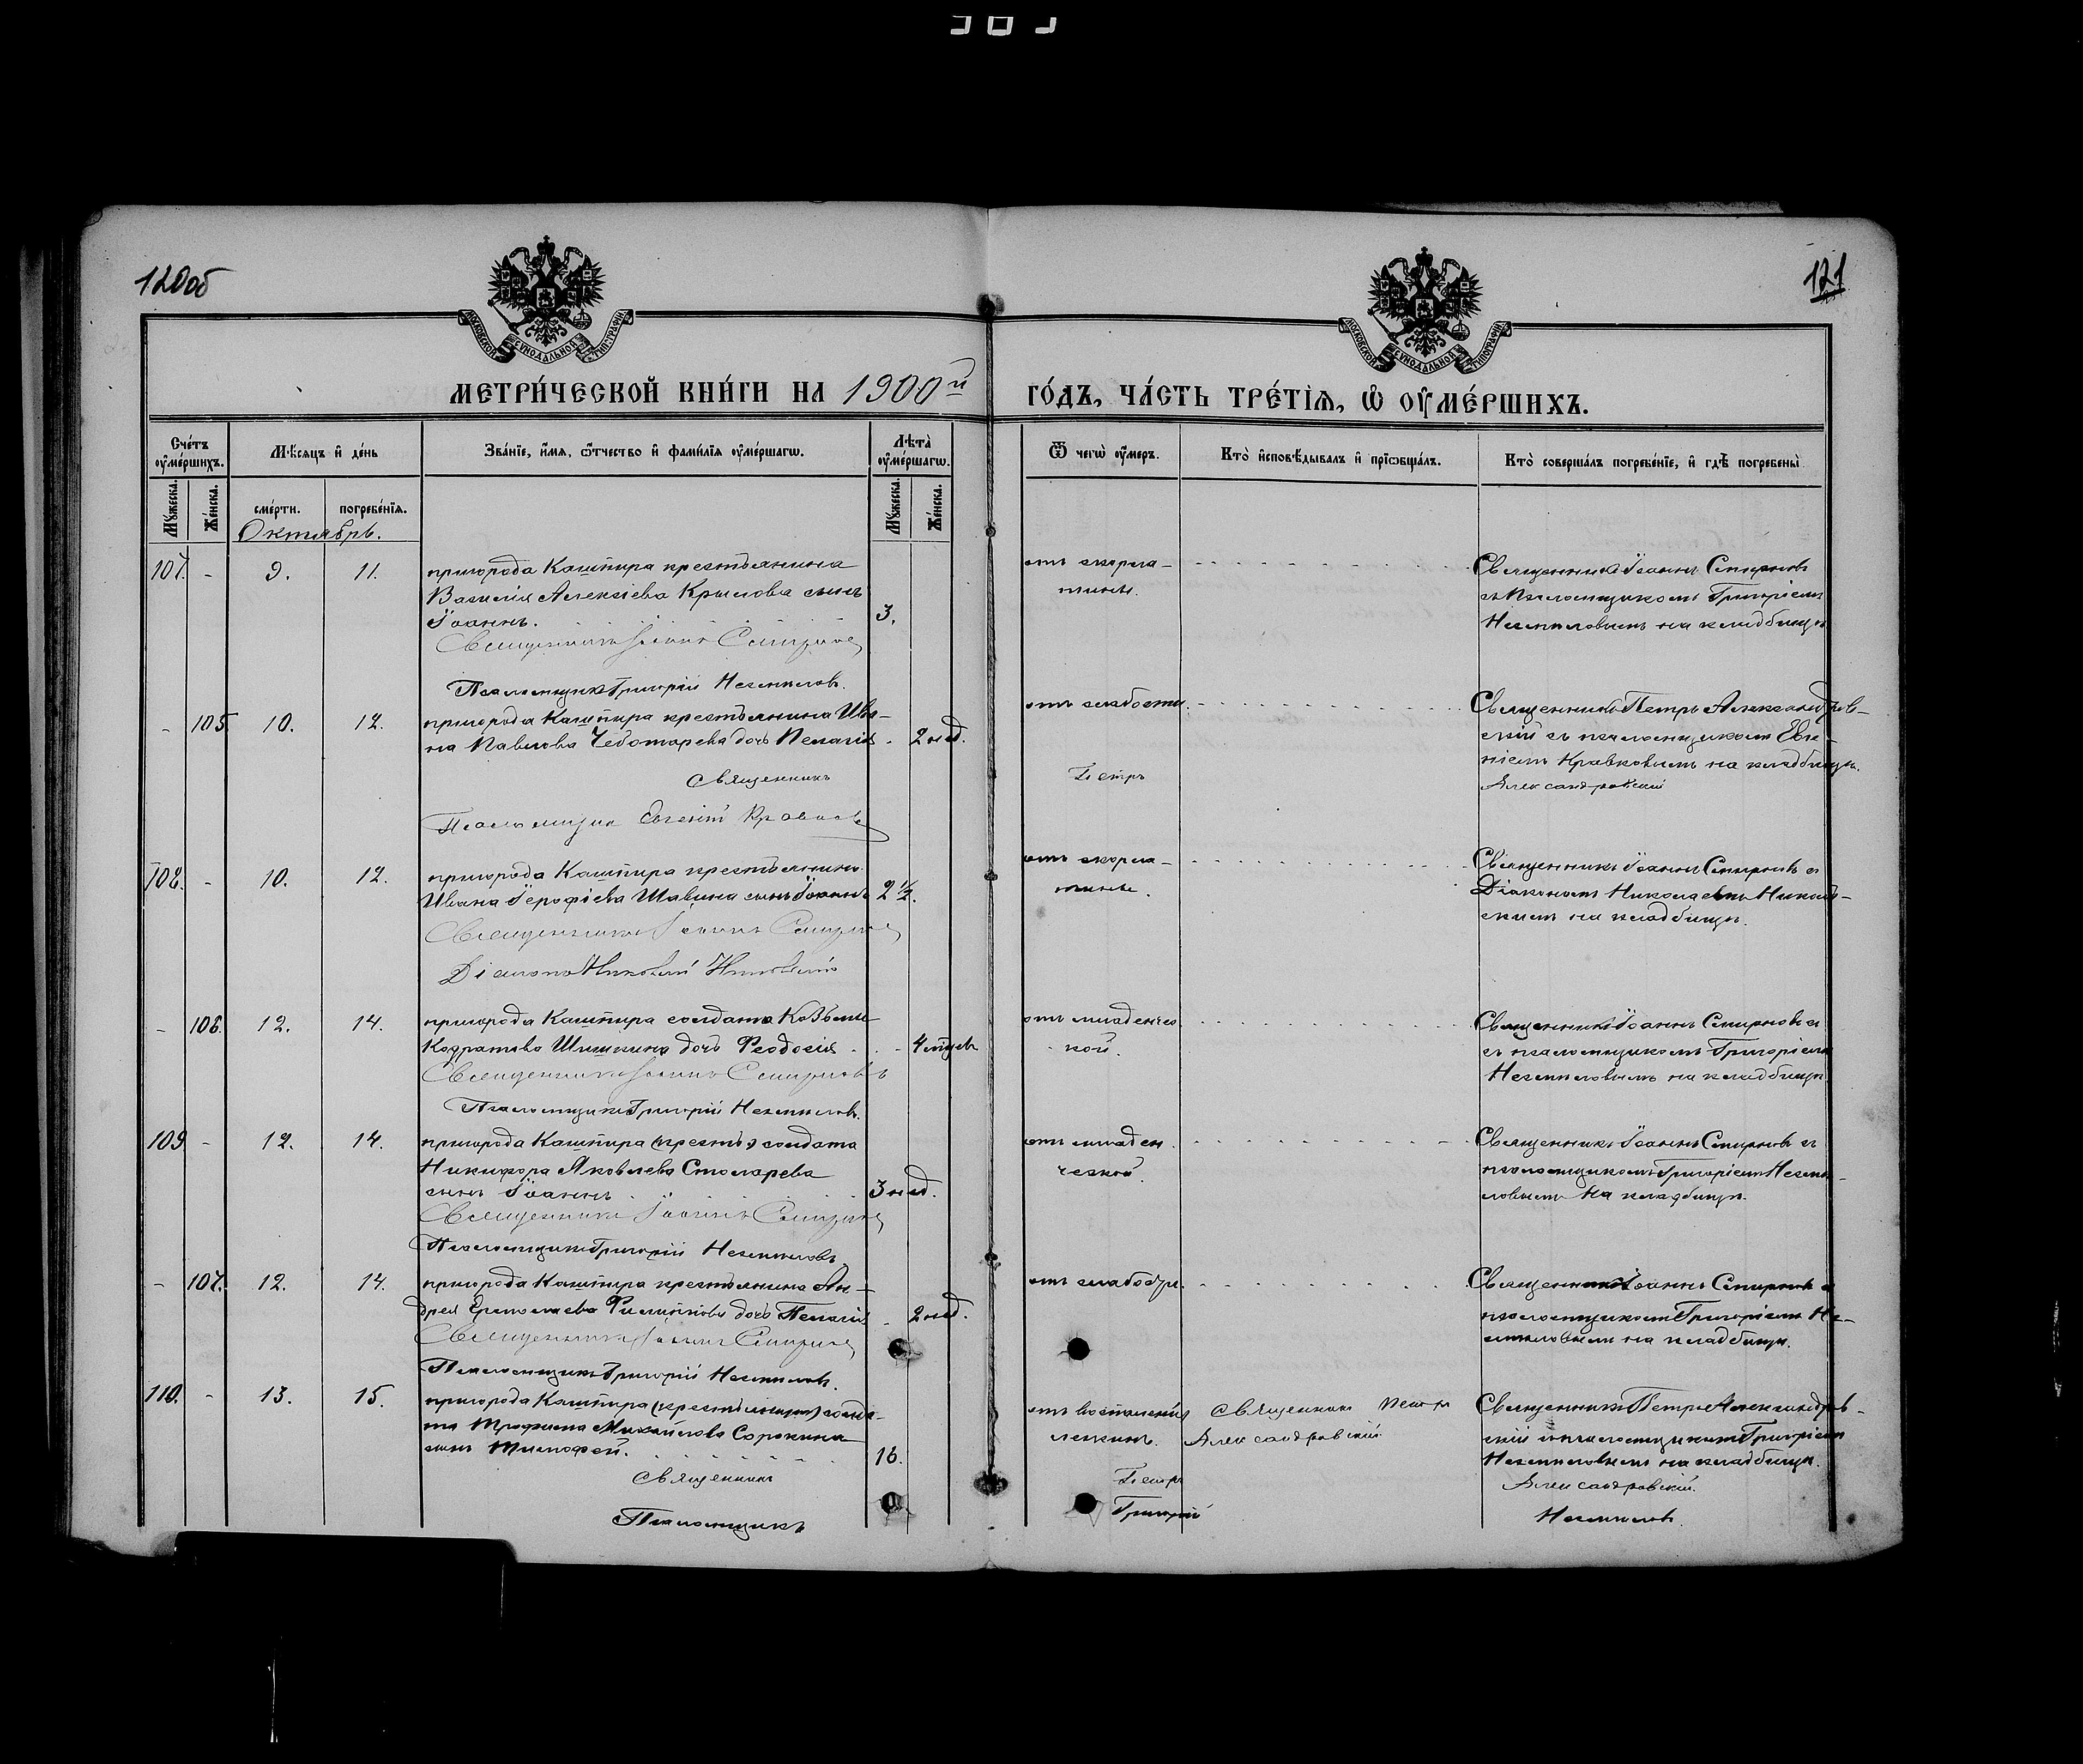 120об
121
МОСКОВСКОЙ СУНОДАЛЬНОЙ ТИПОГРАФІИ
МОСКОВСКОЙ СУНОДАЛЬНОЙ ТИПОГРАФІИ
МЕТРИ́ЧЕСКОЙ КНИ́ГИ НА 1900й ГО́ДЪ, ЧА́СТЬ ТРЕ́ТІѦ, Ѡ҆ ОУ҆МЕ́РШИХЪ.
Сче́тъ оу҆ме́ршихъ.
Мѣ́сяцъ и҆ де́нь
Зва́нїе, и҆́мѧ, ѻ҆́тчество и҆ фами́лїѧ оу҆ме́ршагѡ.
Лѣ́та оу҆ме́ршагѡ.
Ѿ чегѡ̀ оу҆́меръ.
Кто̀ и҆сповѣ́дывалъ и҆ прїѡбща́лъ.
Кто̀ соверша́лъ погребе́нїе, и҆ гдѣ̀ погребены̀
Му́жеска.
Же́нска.
сме́рти.
погребе́нїѧ.
Му́жеска.
Же́нска.
Октябрь.
107. - 9. 11.
пригорода Кашпира крестьянина
Василія Алексіева Крылова сынъ
Іоаннъ. 3.
Священникъ Іоаннъ Смирновъ
Псаломщикъ Григорій Несмеловъ.
отъ скорла-
тины.
Священникъ Іоаннъ Смирновъ
съ псаломщикомъ Григоріемъ
Несмеловымъ на кладбищѣ
- 105. 10. 12.
пригорода Кашпира крестьянина Ива-
на Павлова Чеботарева дочь Пелагія - 2 нед.
Священникъ
Псаломщикъ Евгеній Кравковъ
отъ слабости
Петръ
Священникъ Петръ Александров-
скій съ псаломщикомъ Евге-
ніемъ Кравковымъ на кладбищѣ.
Александровскій
108. - 10. 12.
пригорода Кашпира крестьянина
Ивана Іерофіева Шавина сынъ Іоаннъ 2½.
Священникъ Іоаннъ Смирновъ
Діаконъ Николай Никольскій
отъ скорла-
тины.
Священникъ Іоаннъ Смирновъ съ
Діакономъ Николаемъ Николь-
скимъ на кладбищѣ.
- 106. 12. 14.
пригорода Кашпира солдата Козьмы
Кодратова Шишкина дочь Феодосія - 4 мѣсяц.
Священникъ Іоаннъ Смирновъ
Псаломщикъ Григорій Несмеловъ.
отъ младенчес
кой.
Священникъ Іоаннъ Смирновъ
съ псаломщикомъ Григоріемъ
Несмеловымъ на кладбищѣ
109 - 12. 14.
пригорода Кашпира (крест.) солдата
Никифора Яковлева Столарева
сынъ Іоаннъ 3 нед.
Священникъ Іоаннъ Смирновъ
Псаломщикъ Григорій Несмеловъ
отъ младен
ческой.
Священникъ Іоаннъ Смирновъ съ
псаломщикомъ Григоріемъ Несме-
ловымъ на кладбищѣ.
- 107. 12. 14.
пригорода Кашпира крестьянина Ан-
дрея Ермолаева Филиппова дочь Пелагія - 2 нед.
Священникъ Іоаннъ Смирновъ
Псаломщикъ Григорій Несмеловъ.
отъ слабости.
Священникъ Іоаннъ Смирновъ съ
псаломщикомъ Григоріемъ Не-
смеловымъ на кладбищѣ.
110. - 13. 15.
пригорода Кашпира (крестьянина) солда-
та Трофима Михайлова Сорокина
сынъ Тимофей. 16.
Священникъ
Псаломщикъ
отъ воспаленія
легкихъ.
Петръ
Григорій
Священникъ Петръ
Александровскій
Священникъ Петръ Александров-
скій съ псаломщикомъ Григоріемъ
Несмеловымъ на кладбищѣ.
Александровскій.
Несмеловъ.